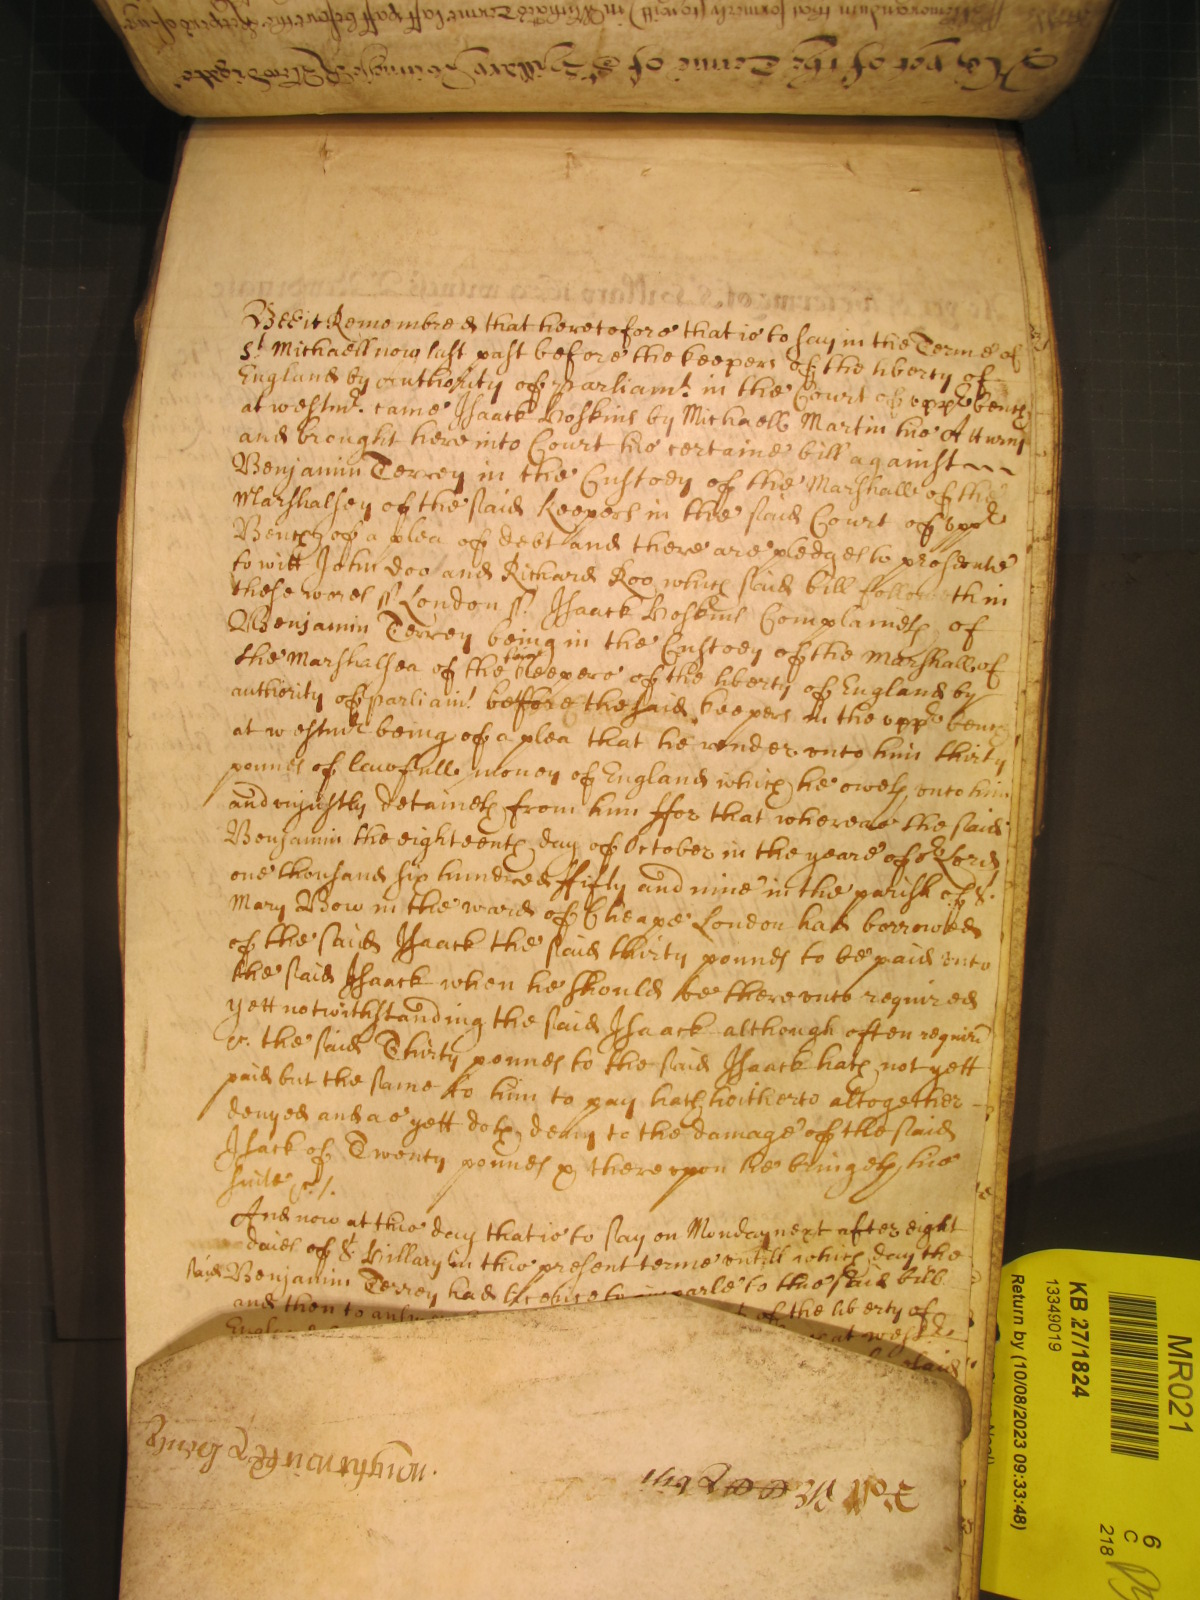 Bee it Remembred that heretofore that is to say in the Terme of
St. Michaell now last past before the keepers of the liberty of
England by authority of Parliamt. in the Court of upp^r bench
at westmr. came Isaack Hoskins by Michaell Martin his Atturny
and brought here into Court his certaine bill against
Benjamin Terrey in the Custody of the Marshall of the
Marshalsey of the said keepers in the said Court of upp^r
Bench of a plea of debt and there are pledges to prosecute
to witt John Doo and Richard Roo which said bill followeth in
these words ss London ss. Isaack Hoskins Complaineth of
Benjamin Terrey being in the Custody of the Marshall of
the Marshalsea of the keepers of the liberty of England by
authority of parliamt. before the said keepers in the upp^r bench
at westmr being of a plea that he render unto him thirty
pounds of lawfull money of England which he oweth unto him
and unjustly detaineth from him ffor that whereas the said
Benjamin the eighteenth day of October in the yeare of or Lord
one thousand six hundred ffifty and nine in the parish of St.
Mary Bow in the ward of Cheape London had borrowed
of the said Isaack the said thirty pounds to be paid unto
the said Isaack when he should be thereunto required
yett notwithstanding the said Isaack although often requird
&c. the said Thirty pounds to the said Isaack hath not yett
paid but the same to him to pay hath hitherto altogether
denyed and as yett doth deny to the damage of the said
Isack of Twenty pounds & thereupon he bringeth his
suite &c.
And now at this day that is to say on Monday next after eight
daies of St. Hillary in this present terme untill which day the
said Benjamin Terrey had licence to imparle to the said bill
and then to answ of the liberty of
England at westmr
said
MR021
KB 27/1824
13349019
Return by (10/08/2023 09:33:48)
6
C
218